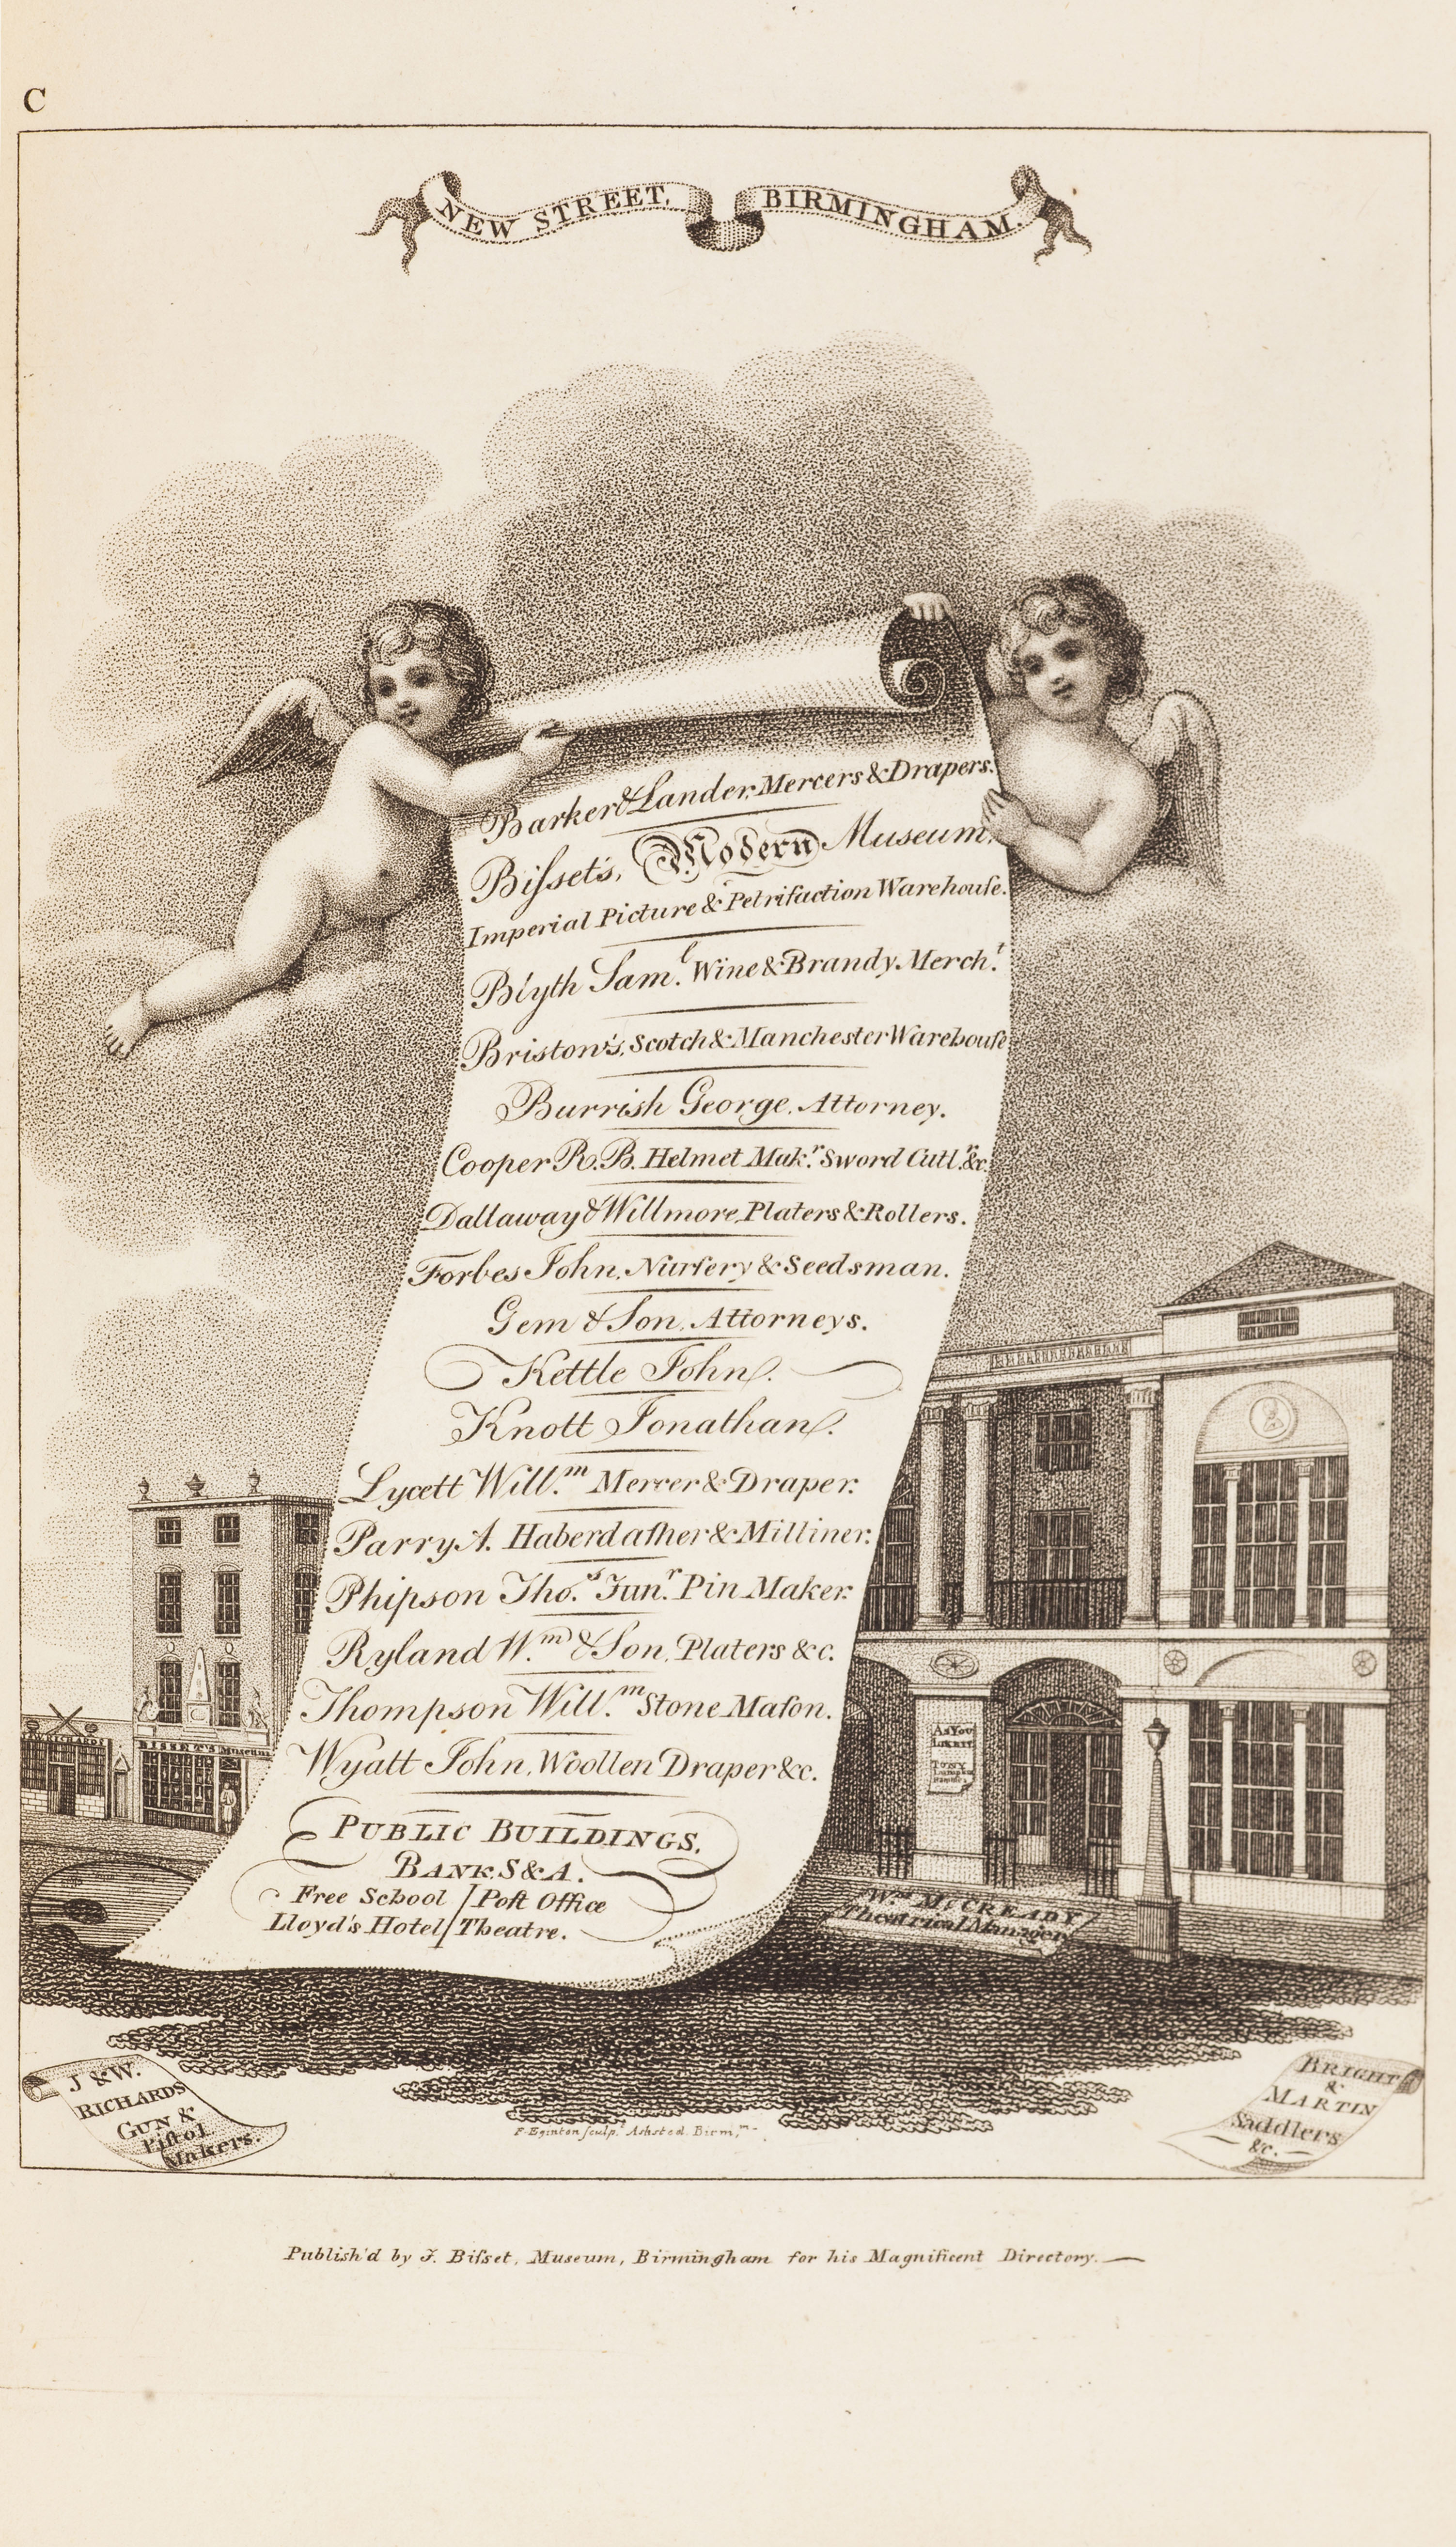 C
NEW STREET, BIRMINGHAM.
Barker & Lander, Mercers & Drapers.
Biſset's, Modern Museum,
Imperial Picture & Petrifaction Warehouſe.
Blyth Sam.l Wine & Brandy Merch.t
Briston's, Scotch & Manchester Warehouſe
Burrish George, Attorney.
Cooper R. B. Helmet Mak.r Sword Cutl.r &c.
Dallaway & Willmore, Platers & Rollers.
Forbes John, Nurſery & Seedsman.
Gem & Son, Attorneys.
Kettle John.
Knott Jonathan.
Lycett Will.m Mercer & Draper.
Parry A. Haberdaſher & Milliner.
Phipson Tho.s Jun.r Pin Maker.
Ryland W.m & Son, Platers &c.
Thompson Will.m Stone Maſon.
Wyatt John, Woollen Draper &c.
PUBLIC BUILDINGS.
BANK, S & A.
Free School / Poſt Office
Lloyd's Hotel / Theatre.
RICHARDS
BISSET'S Museum
AS YOU
LIKE IT
TONY
Lumpkin
W.m McCREADY
Theatrical Manager
J & W.
RICHARDS
GUN &
Piſtol
Makers.
BRIGHT
&
MARTIN
Saddlers
&c.
F. Eginton ſculp.t Aſhsted. Birm.m
Publish'd by J. Biſset, Museum, Birmingham for his Magnificent Directory.